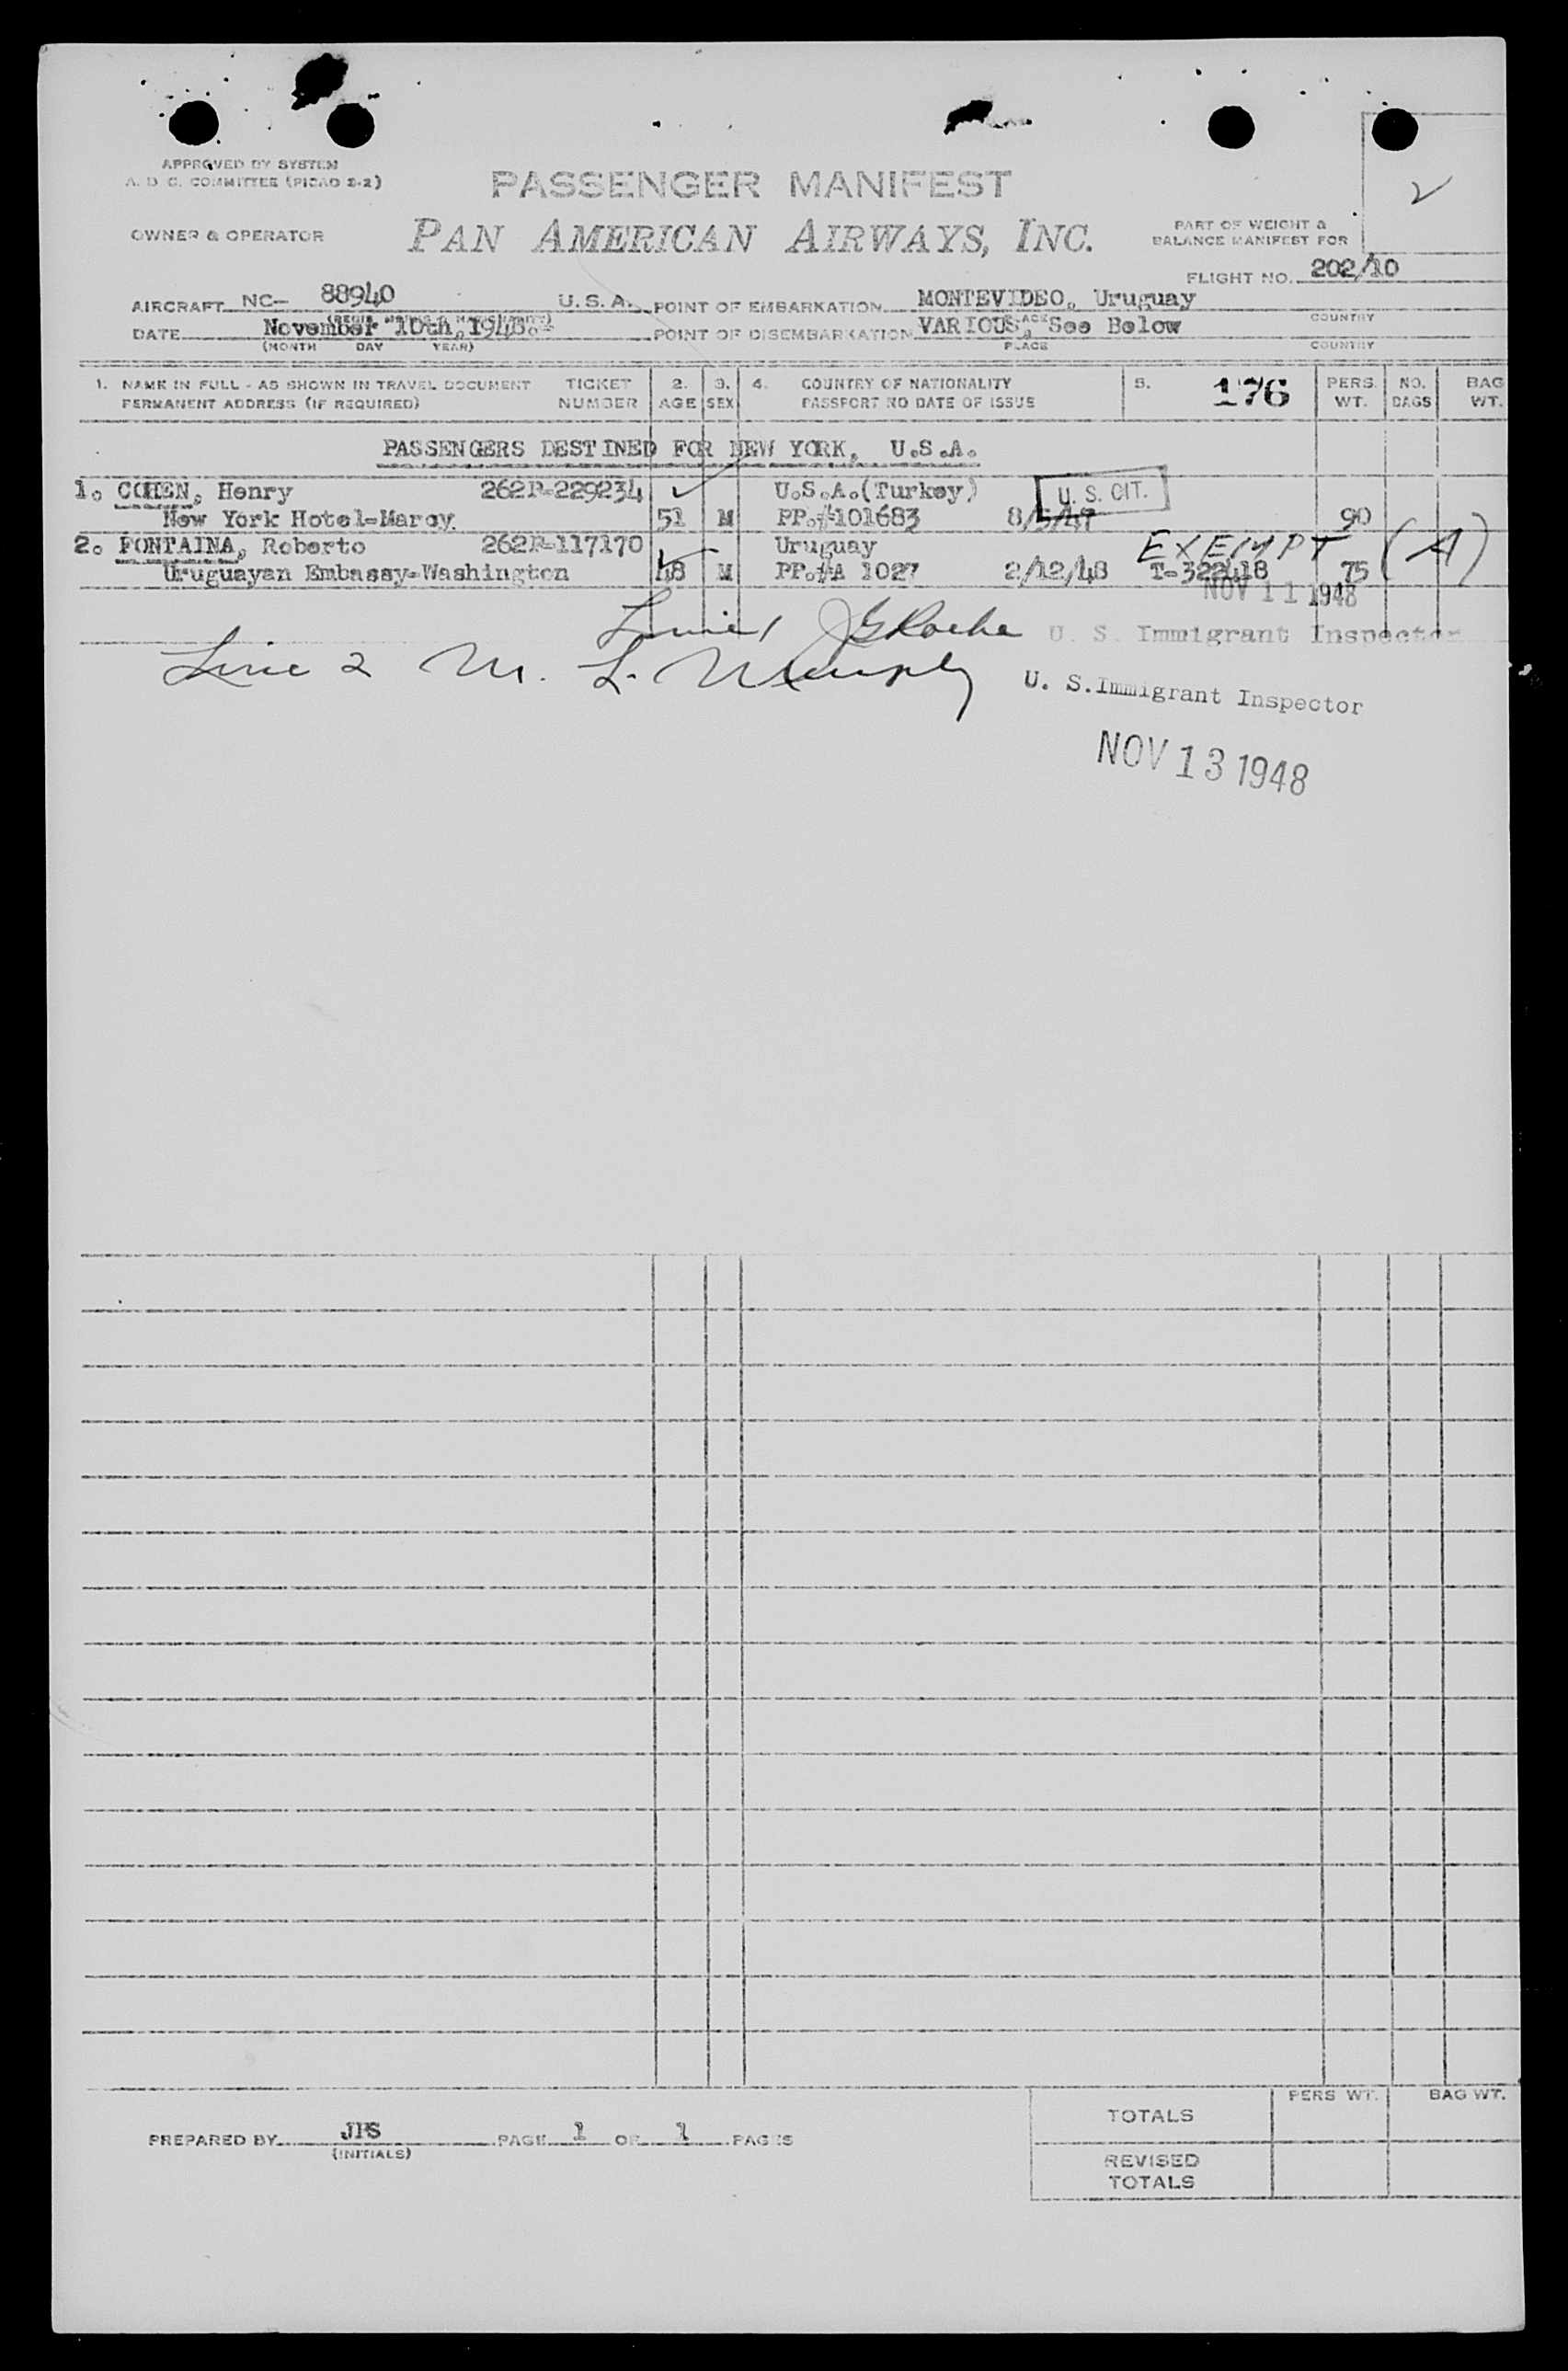 APPROVED BY SYSTEM
A. D. C. COMMITTEE (PICAO 2-2)
PASSENGER MANIFEST
OWNER & OPERATOR
PAN AMERICAN AIRWAYS, INC.
PART OF WEIGHT &
BALANCE MANIFEST FOR
FLIGHT NO. 202/10
AIRCRAFT NC- 88940 U. S. A. POINT OF EMBARKATION MONTEVIDEO, Uruguay
DATE November 10th, 1948. POINT OF DISEMBARKATION VARIOUS, See Below
(MONTH DAY YEAR) PLACE COUNTRY
1. NAME IN FULL - AS SHOWN IN TRAVEL DOCUMENT TICKET 2. 3. 4. COUNTRY OF NATIONALITY 5. 176 PERS. NO. BAG
PERMANENT ADDRESS (IF REQUIRED) NUMBER AGE SEX PASSPORT NO DATE OF ISSUE WT. BAGS WT.
PASSENGERS DESTINED FOR NEW YORK, U.S.A.
1. COHEN, Henry 262R-229234 U.S.A.(Turkey) U. S. CIT.
New York Hotel-Marcy. 51 M PP.#101683 90
2. FONTAINA, Roberto 262R-117170 Uruguay EXEMPT (A)
Uruguayan Embassy-Washington 48 M PP.#A 1027 2/12/48 T-322418 75
NOV 11 1948
Line 1 JG Roche U. S. Immigrant Inspector
Line 2 M. L. U. S. Immigrant Inspector
NOV 13 1948
PERS WT. BAG WT.
TOTALS
PREPARED BY JPS PAGE 1 OF 1 PAGES
(INITIALS)
REVISED
TOTALS